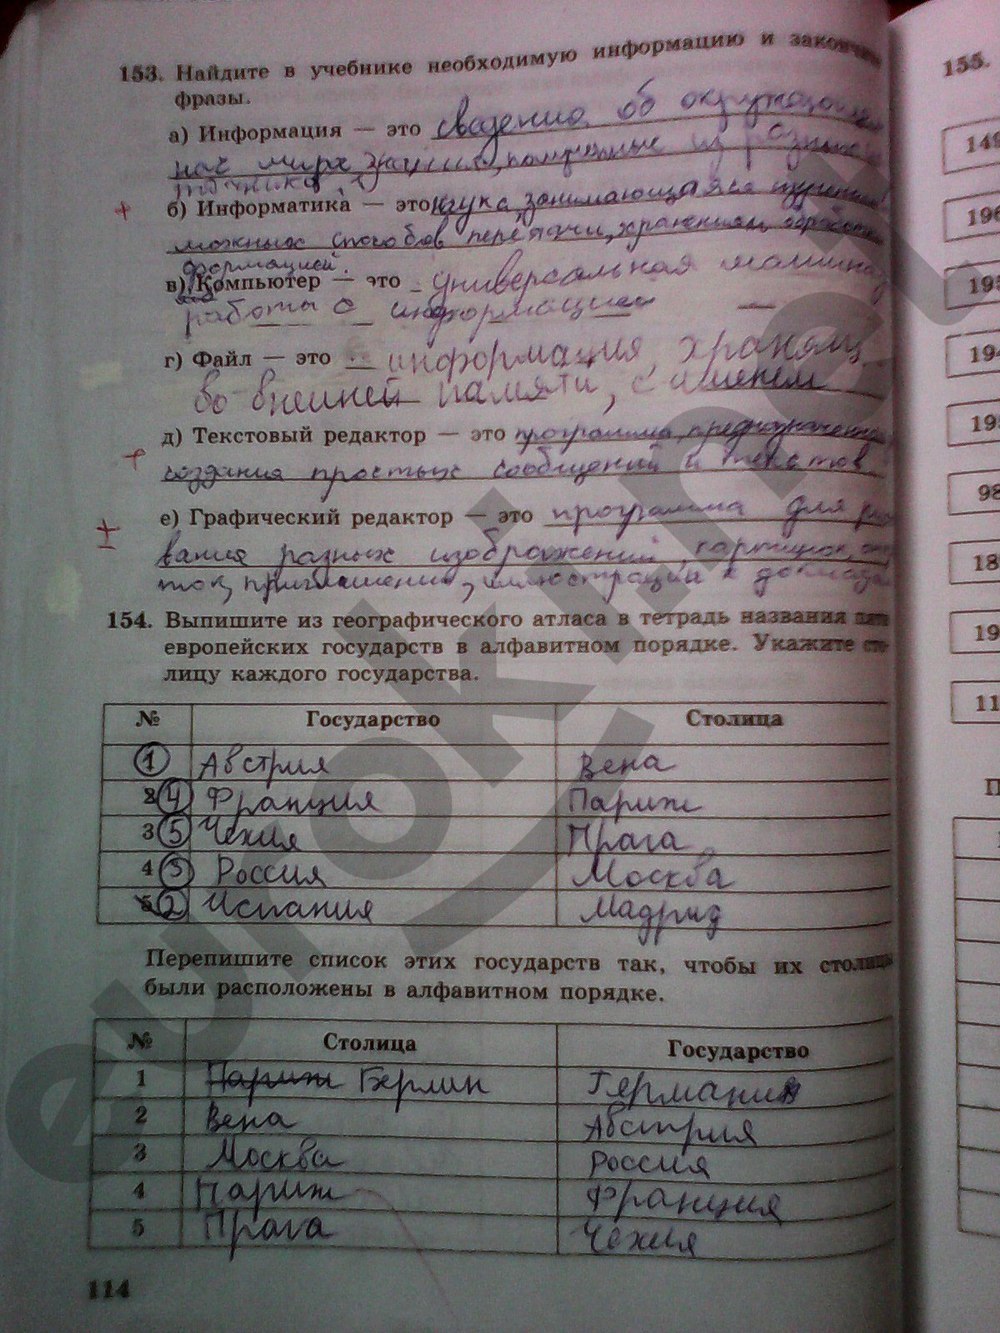 153. Найдите в учебнике необходимую информацию и закончите
фразы.
а) Информация — это сведения об окружающем
нас мире, знания, полученные из разных
б) Информатика — это наука, занимающаяся изучением
можных способов передачи, хранения, обработки
формацией.
в) Компьютер — это универсальная машина
работы с информацией
г) Файл — это информация, хранящ
во внешней памяти, с именем
д) Текстовый редактор — это программа, предназначенная
создания простых сообщений и текстов
е) Графический редактор — это программа для рисо
вания разных изображений, картинок, отк
ток, приглашений, иллюстраций к докладам
154. Выпишите из географического атласа в тетрадь названия пяти
европейских государств в алфавитном порядке. Укажите сто-
лицу каждого государства.
№ Государство Столица
1 Австрия Вена
2 4 Франция Париж
3 5 Чехия Прага
4 3 Россия Москва
5 2 Испания Мадрид
Перепишите список этих государств так, чтобы их столицы
были расположены в алфавитном порядке.
№ Столица Государство
1 Париж Берлин Германия
2 Вена Австрия
3 Москва Россия
4 Париж Франция
5 Прага Чехия
114
155.
149
196
195
194
198
18
19
11
П
euroki.net